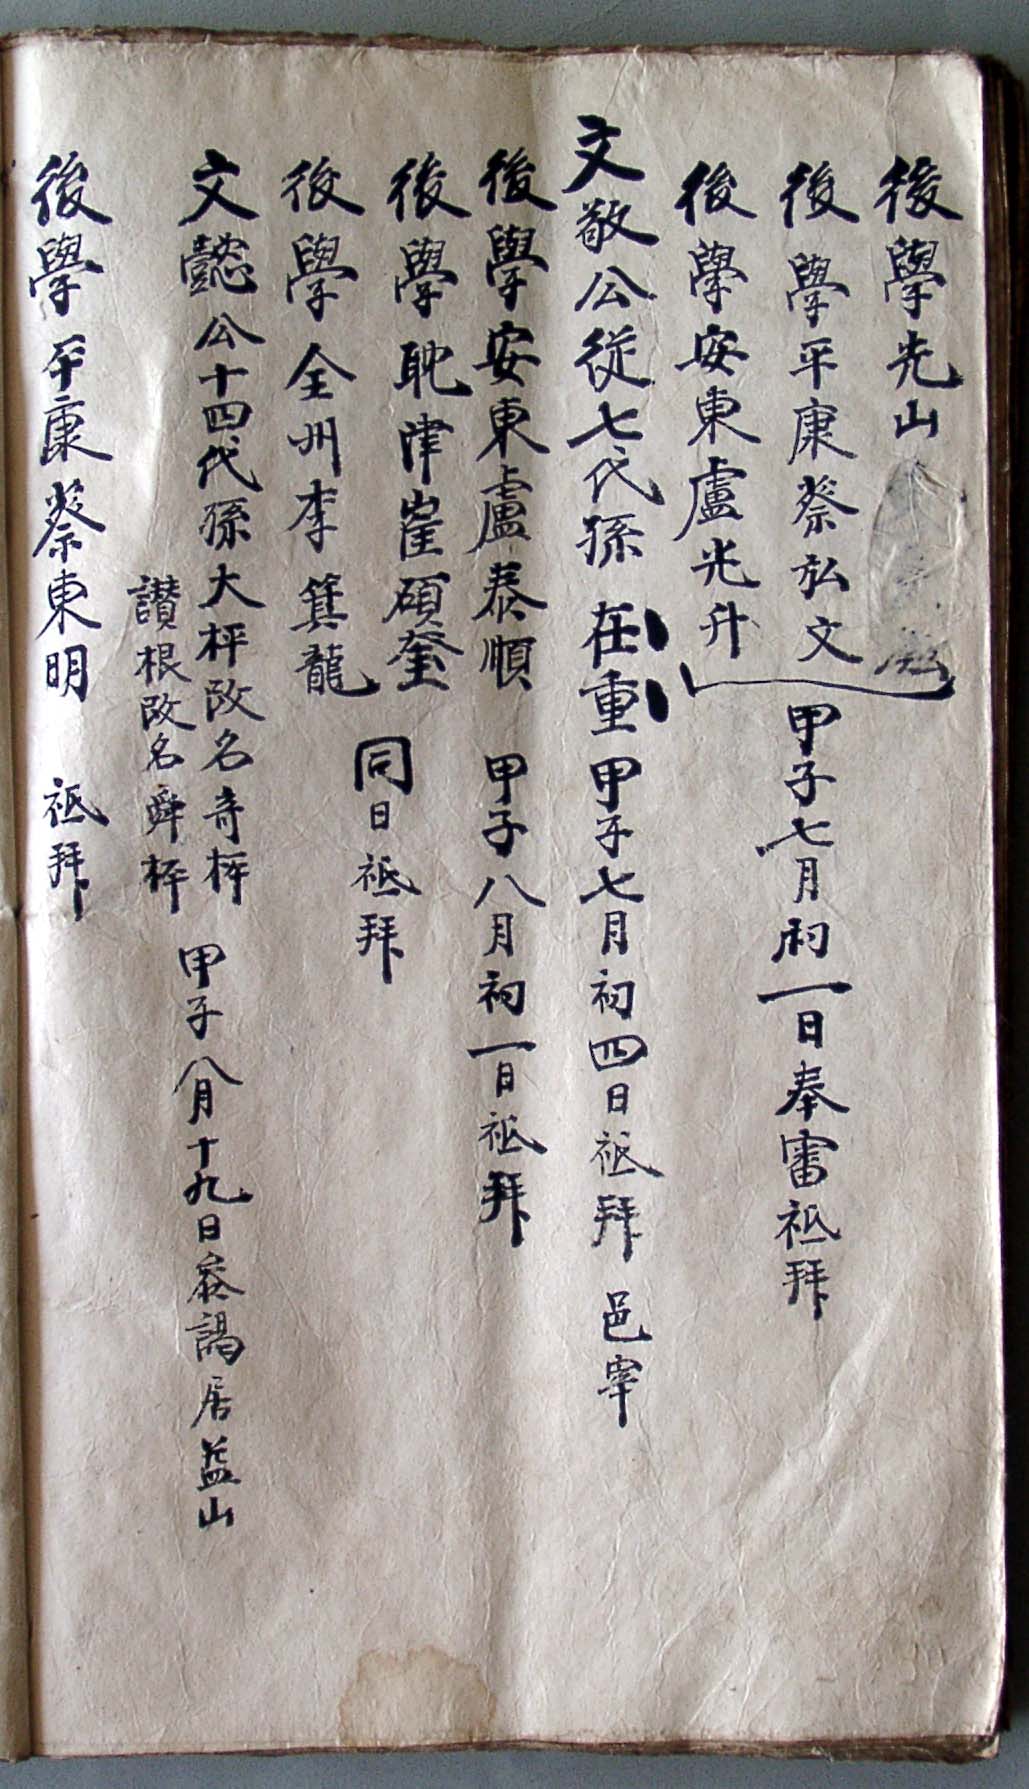 後學光山
後學平康蔡弘文 甲子七月初一日奉審祗拜
後學安東盧光升
文敬公從七代孫 在重 甲子七月初四日祗拜 邑宰
後學安東盧泰順 甲子八月初一日祗拜
後學耽津崔碩奎
同日祗拜
後學全州李箕龍
文懿公十四代孫大枰改名奇枰
讚根改名舜枰
甲子八月十九日叅謁居益山
後學平康蔡東明 祗拜